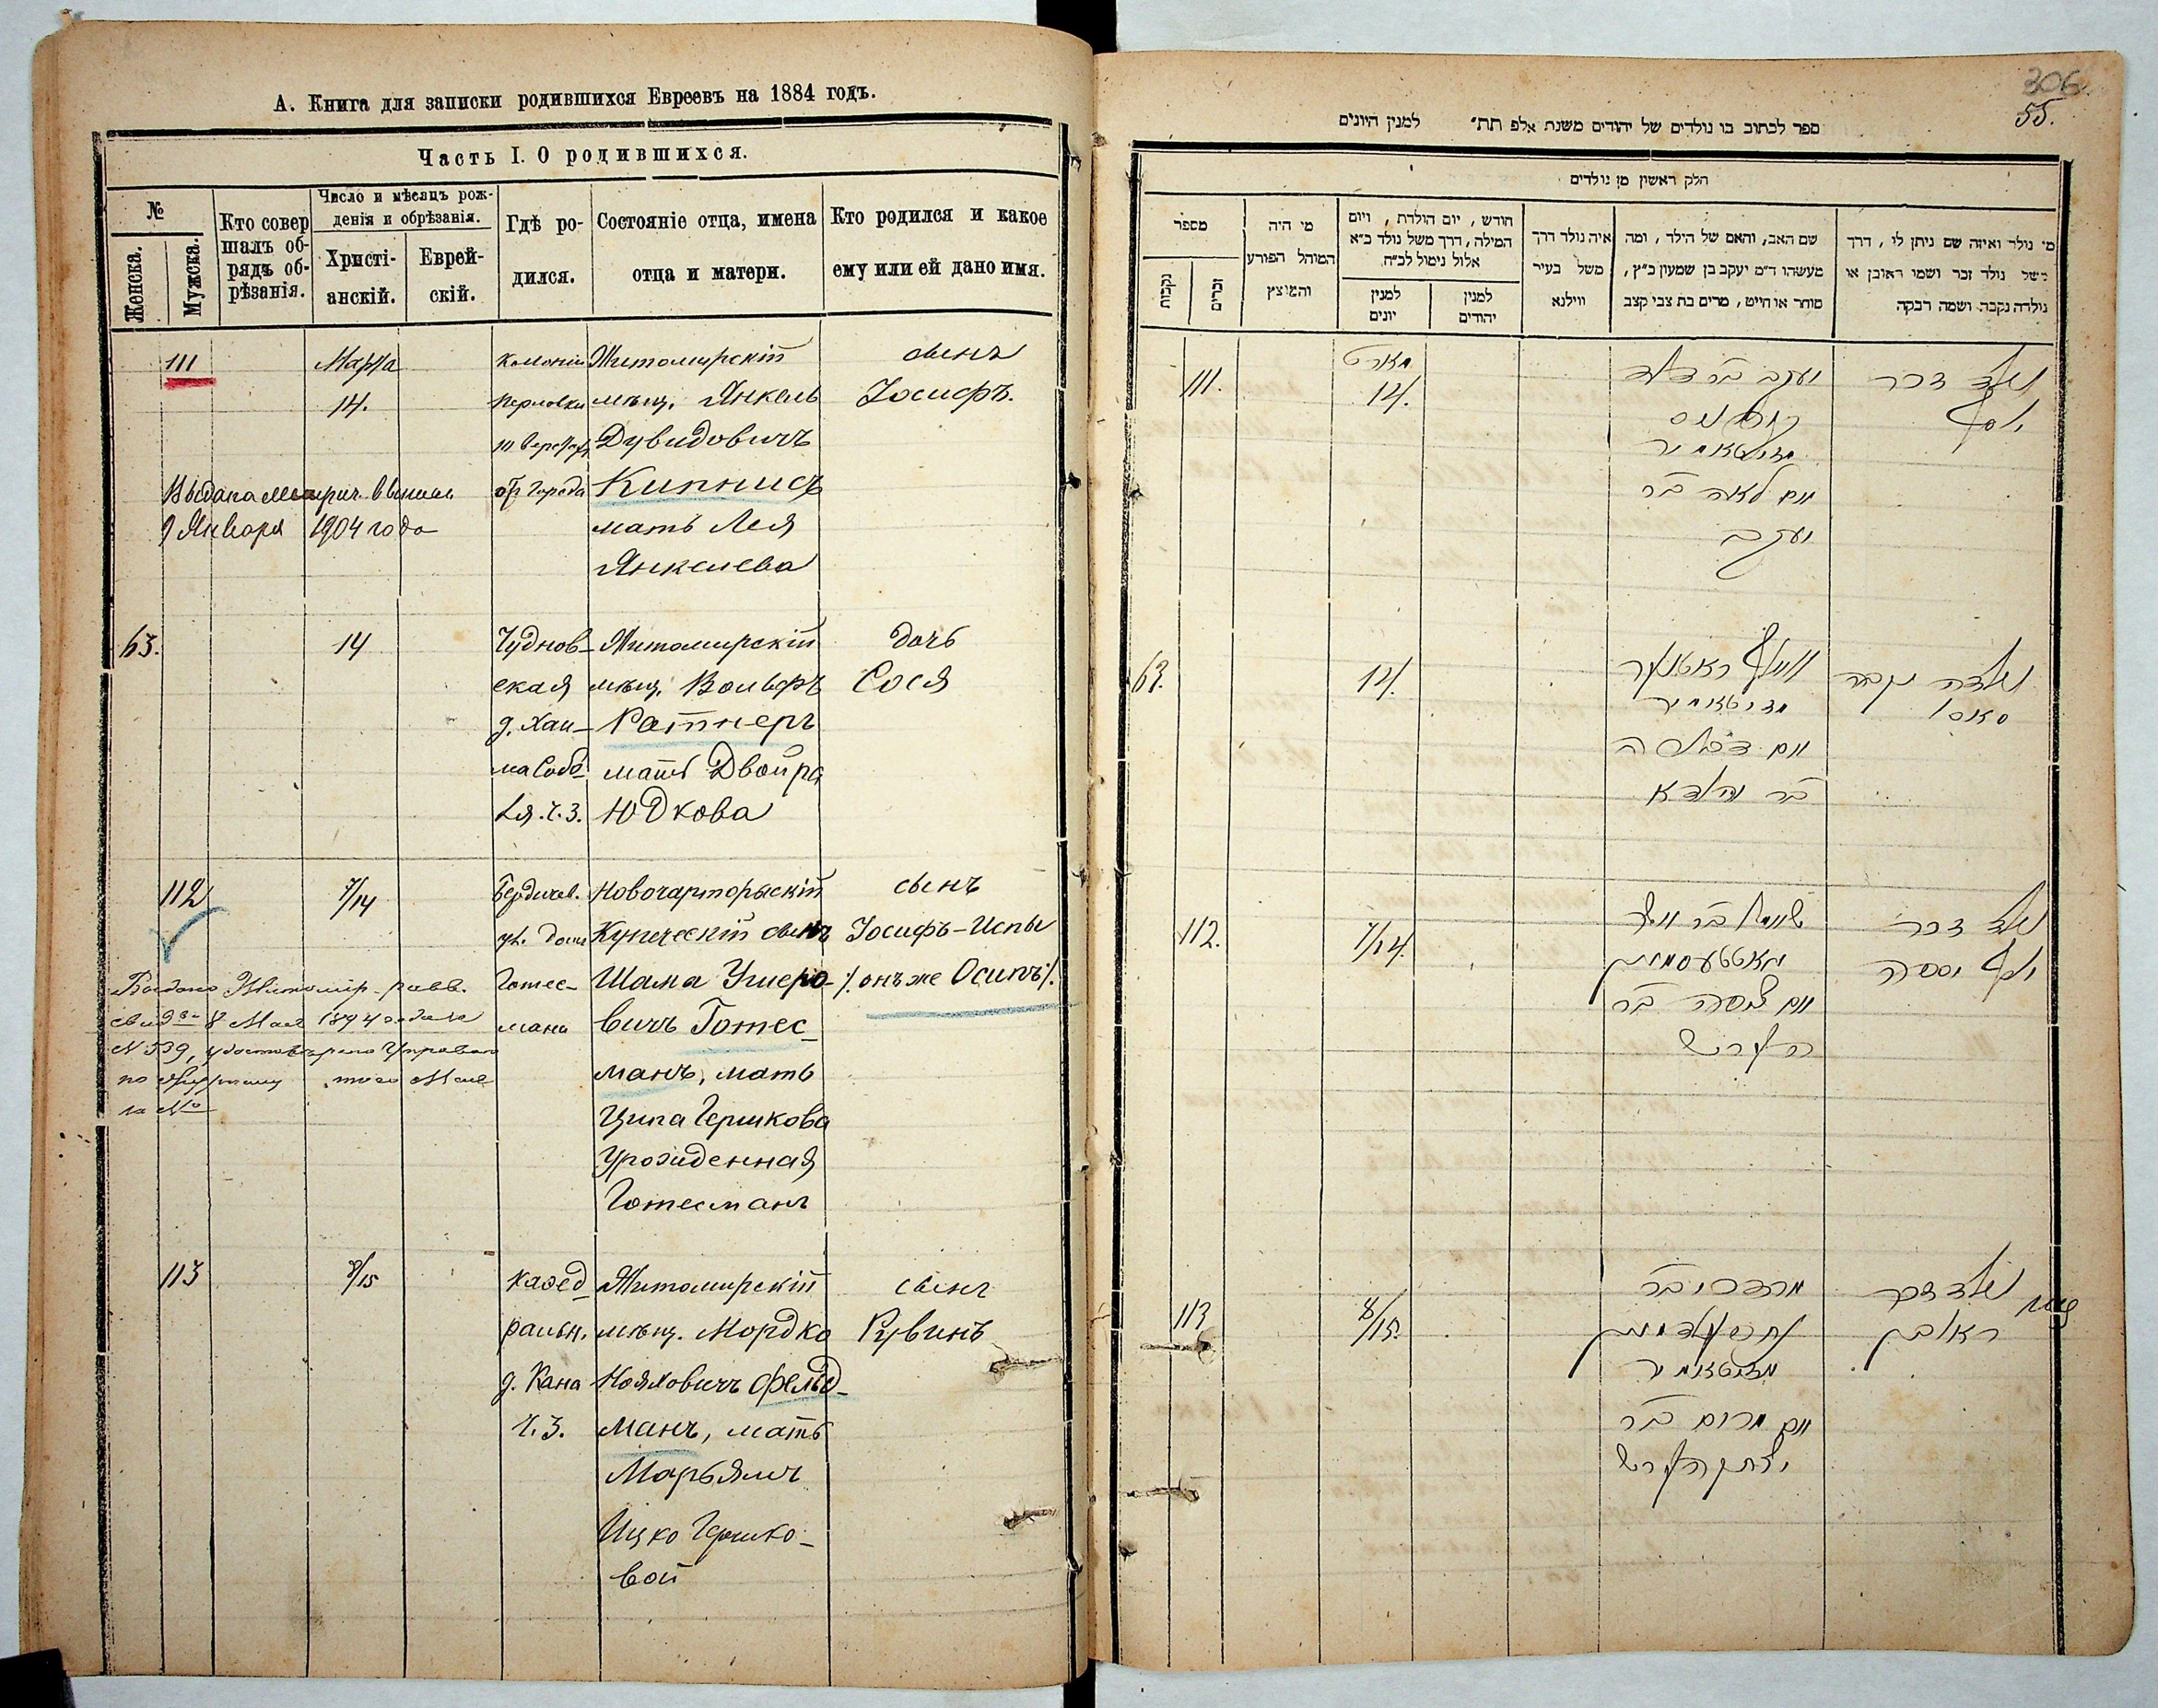 А. Книга для записки родившихся Евреевъ на 1884 годъ.
Часть I. О родившихся.
№
Женска.
Мужска.
Кто совер
шалъ об-
рядъ об-
рѣзанія.
Число и мѣсяцъ рож-
денія и обрѣзанія.
Христі-
анскій.
Еврей-
скій.
Гдѣ ро-
дился.
Состояніе отца, имена
отца и матери.
Кто родился и какое
ему или ей дано имя.
111
Марта
14.
Колоніи
отъ города
Житомирскій
мѣщ. Янкель
Дувидовичъ
Кипнисъ
мать Лея
Янкелева
сынъ
Іосифъ.
Выдана метрич. выпись
9 Января 1904 года
63.
14
Чуднов-
ская
д. Хаи-
ма Собе
ля. ч. з.
Житомирскій
мѣщ. Вольфъ
Ратнеръ
мать Двойра
Юдкова
дочь
Сося
112
7/14
Бердичев.
ул. домъ
Готес-
мана
Новочарторыскій
Купеческій сынъ
Шама Ушеро-
вичъ Готес-
манъ, мать
Ципа Гершкова
урожденная
Готесманъ
сынъ
Іосифъ-Испы
/. онъ же Осипъ /.
8 Мая 1894 года за
№ 539,
113
8/15
Кафед-
ральн.
д. Кана
ч. З.
Житомирскій
мѣщ. Мордко
Нояховичъ Фельд-
манъ, мать
Марьямъ
Ицко Гершко-
вой
сынъ
Рувинъ
306
55.
ספר לכתוב בו נולדים של יהודים משנת אלפ תת״ למנין היונים
חלק ראשון מן נולדים
מספר
נקבות
זכרים
מי היה
המוהל הפורע
והמוצץ
חודש, יום הולדת, ויום
המילה, דרך משל נולד כ״א
אלול נימול לכ״ח
למנין
יונים
למנין
יהודים
איה נולד דרך
משל בעיר
ווילנא
שם האב, והאם של הילד, ומה
מעשהו ד״מ יעקב בן שמעון כ״ץ,
סוחר או חייט, מרים בת צבי קצב
מי נולד ואיזה שם ניתן לו, דרך
משל נולד זכר ושמו ראובן או
נולדה נקבה ושמה רבקה
111.
מארט
14.
יעקב בר דוד
קיפניס
מזיטאמיר
ואם לאה בר
יעקב
נולד זכר
יוסף
63.
14.
וואלף ראטנער
מזיטאמיר
ואם דבורה
בר יודא
נולדה נקבה
סאסי
112.
7/14.
גאטעסמאן
ואם ציפה בר
הערש
נולד זכר
יוסף
113
8/15.
מרדכי בר
נח פעלדמאן
מזיטאמיר
ואם מרים בר
יצחק הערש
נולד זכר
ראובן